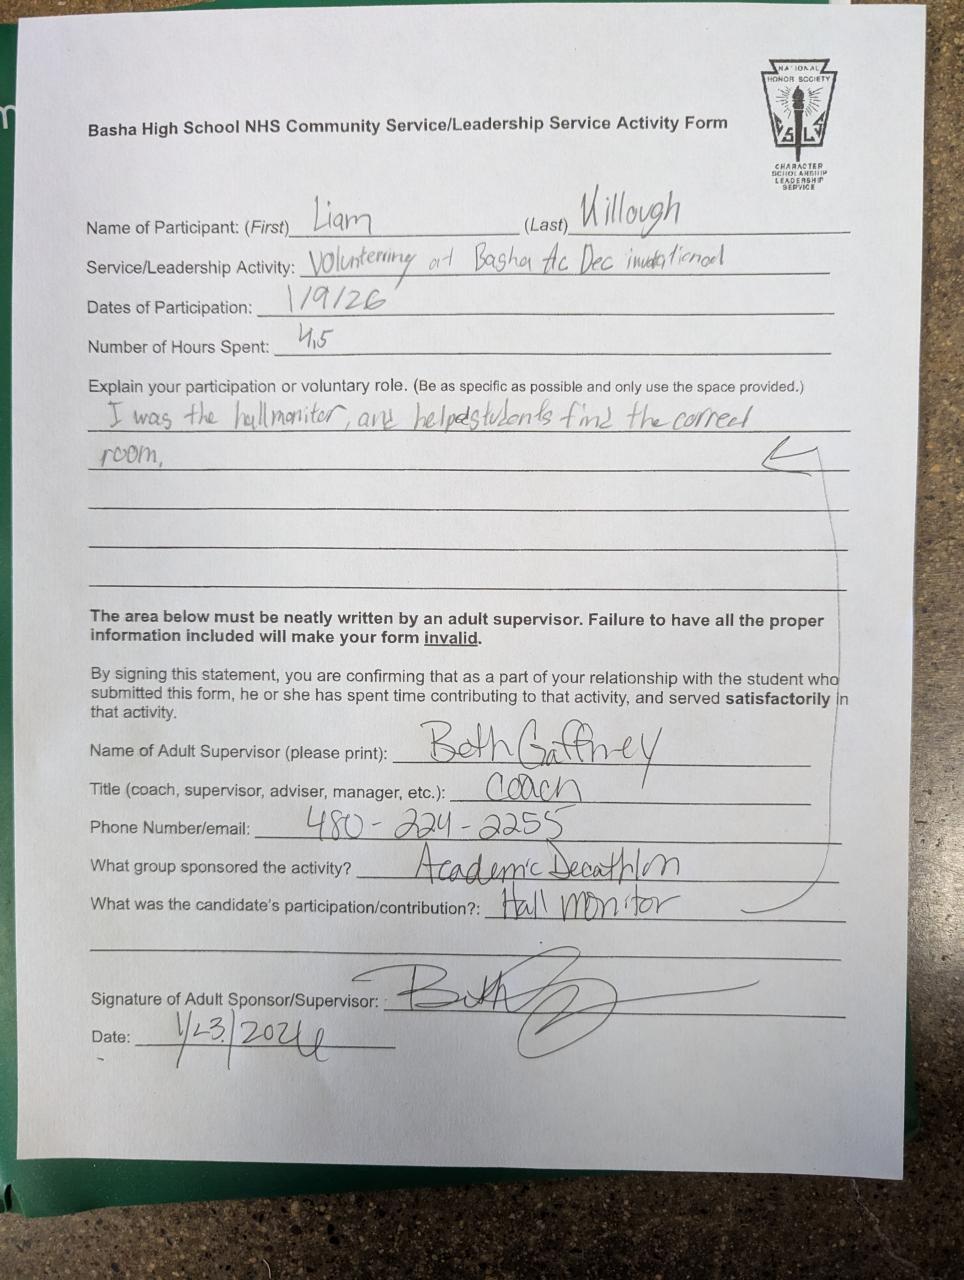 NATIONAL
HONOR SOCIETY
S L S
CHARACTER
SCHOLARSHIP
LEADERSHIP
SERVICE
Basha High School NHS Community Service/Leadership Service Activity Form
Name of Participant: (First) Liam (Last) Killough
Service/Leadership Activity: Volunterring at Basha Ac Dec invatational
Dates of Participation: 1/9/26
Number of Hours Spent: 4.5
Explain your participation or voluntary role. (Be as specific as possible and only use the space provided.)
I was the hallmonitor, and helped students find the correct
room,
The area below must be neatly written by an adult supervisor. Failure to have all the proper
information included will make your form invalid.
By signing this statement, you are confirming that as a part of your relationship with the student who
submitted this form, he or she has spent time contributing to that activity, and served satisfactorily in
that activity.
Name of Adult Supervisor (please print): Beth Gaffney
Title (coach, supervisor, adviser, manager, etc.): Coach
Phone Number/email: 480-224-2255
What group sponsored the activity? Academic Decathlon
What was the candidate's participation/contribution?: Hall monitor
Signature of Adult Sponsor/Supervisor: Beth
Date: 1/23/2026